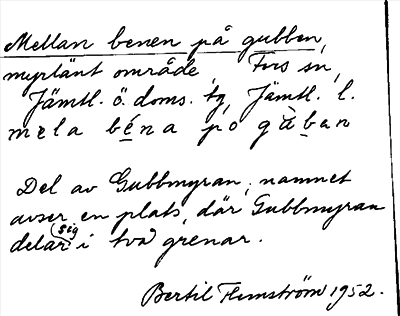 Mellan benen på gubben,
myrlänt område, Fors sn,
Jämtl. ö. doms. tg, Jämtl. l.
mela béna pó gàban
Del av Gubbmyran; namnet
avser en plats, där Gubbmyran
delar sig i två grenar.
Bertil Flemström 1952.